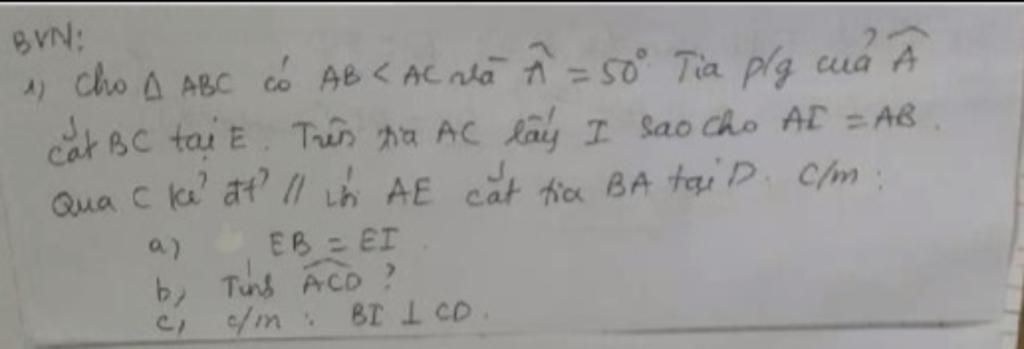 BVN:
1) Cho Δ ABC có AB < AC và Â = 50° Tia p/g của Â
cắt BC tại E. Trên tia AC lấy I sao cho AI = AB.
Qua C kẻ đt // với AE cắt tia BA tại D. C/m:
a) EB = EI.
b, Tính ACD?
c, c/m: BI ⊥ CD.